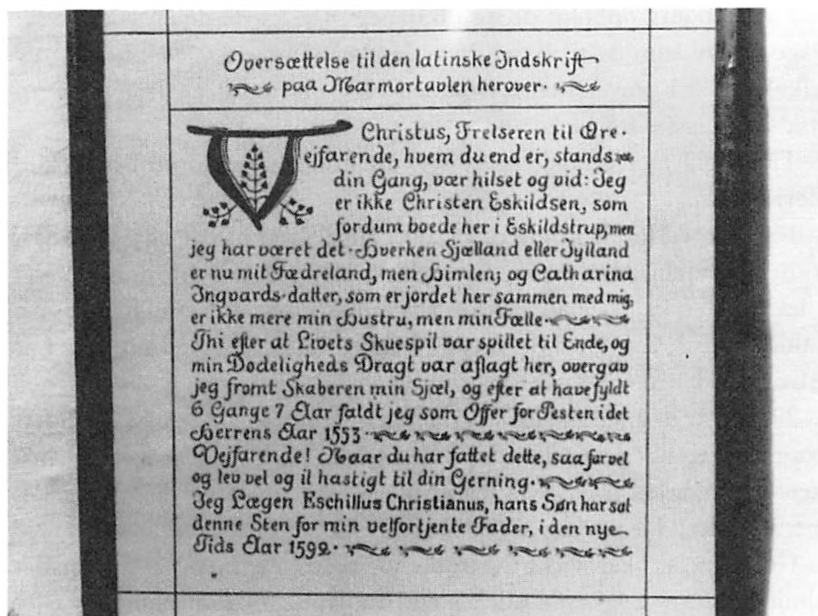 Oversættelse til den latinske Indskrift
paa Marmortavlen herover.
Christus, Frelseren til Ære.
Vejfarende, hvem du end er, stands
din Gang, vær hilset og vid: Jeg
er ikke Christen Eskildsen, som
fordum boede her i Eskildstrup, men
jeg har været det. Hverken Sjælland eller Jylland
er nu mit Fædreland, men Himlen; og Catharina
Ingvards-datter, som er jordet her sammen med mig,
er ikke mere min Hustru, men min Fælle.
Thi efter at Livets Skuespil var spillet til Ende, og
min Dødeligheds Dragt var aflagt her, overgav
jeg fromt Skaberen min Sjæl, og efter at have fyldt
6 Gange 7 Aar faldt jeg som Offer for Pesten i det
Herrens Aar 1553.
Vejfarende! Naar du har fattet dette, saa far vel
og lev vel og il hastigt til din Gerning.
Jeg Lægen Eschillus Christianus, hans Søn har sat
denne Sten for min velfortjente Fader, i den nye
Tids Aar 1592.